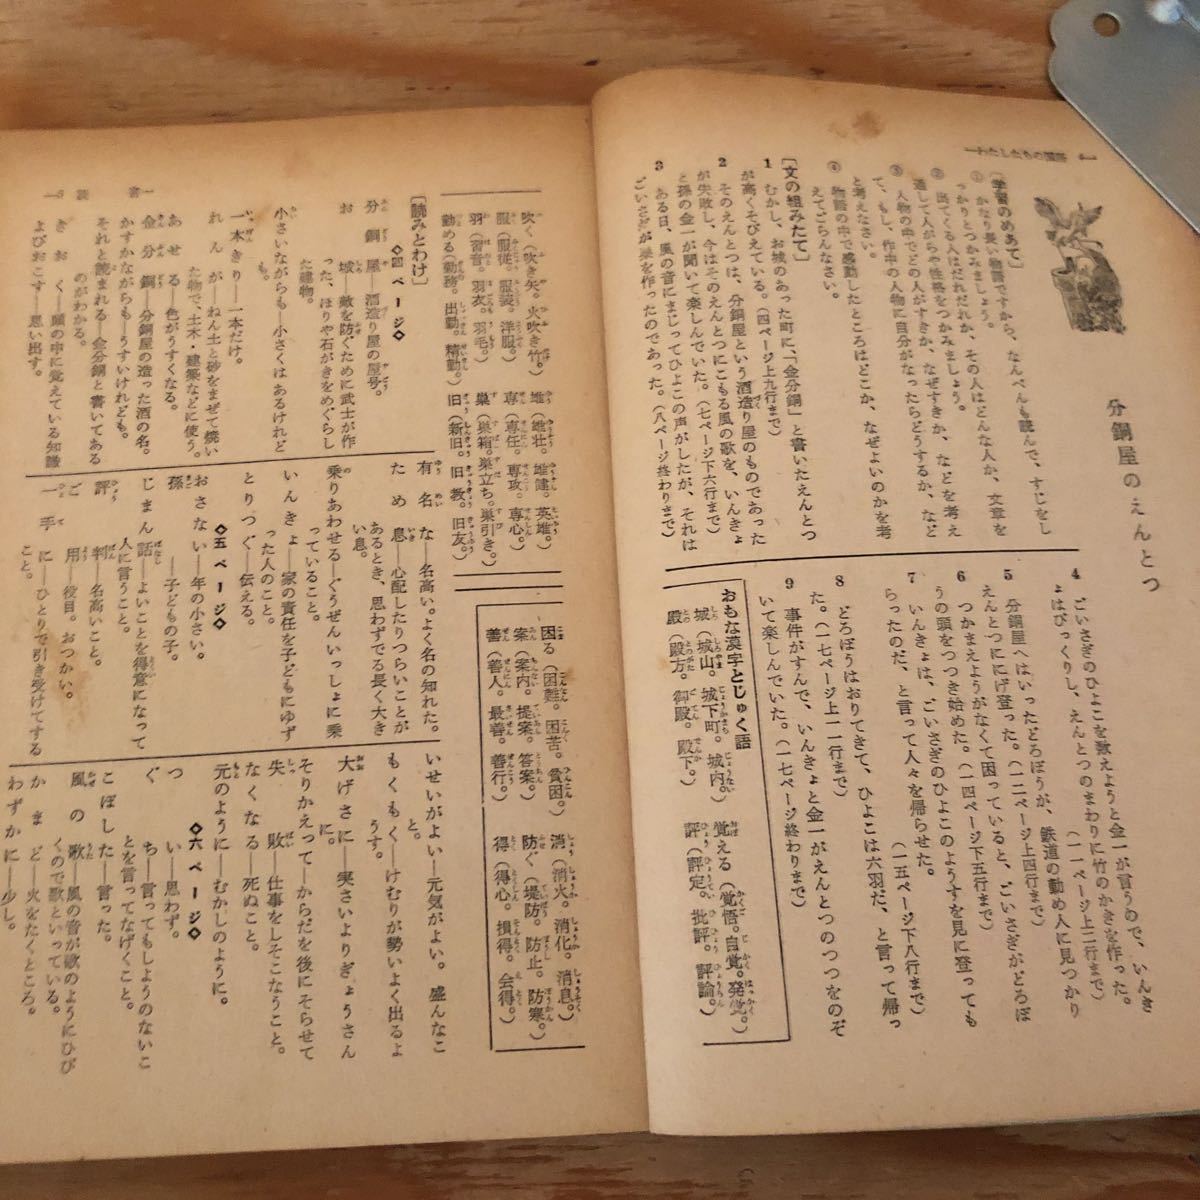 —わたしたちの国語 4—
分銅屋のえんとつ
〔学習のめあて〕
① かなり長い物語ですから、なんべんも読んで、すじをし
っかりとつかみましょう。
② 出てくる人はだれだれか、その人はどんな人か、文章を
通して人がらや性格をつかみましょう。
③ 人物の中でどの人がすきか、なぜすきか、などを考え
て、もし、作中の人物に自分がなったらどうするか、など
と考えなさい。
④ 物語の中で感動したところはどこか、なぜよいのかを考
えてごらんなさい。
〔文の組みたて〕
1 むかし、お城のあった町に、「金分銅」と書いたえんとつ
が高くそびえている。(四ページ上九行まで)
2 そのえんとつは、分銅屋という酒造り屋のものであった
が失敗し、今はそのえんとつにこもる風の歌を、いんきょ
と孫の金一が聞いて楽しんでいた。(七ページ下六行まで)
3 ある日、風の音にまじってひよこの声がしたが、それは
ごいさぎが巣を作ったのであった。(八ページ終わりまで)
4 ごいさぎのひよこを救えようと金一が言うので、いんき
ょはびっくりし、えんとつのまわりに竹のかきを作った。
(一一ページ上二行まで)
5 分銅屋へはいったどろぼうが、鉄道の勤め人に見つかり
えんとつににげ登った。(一二ページ上四行まで)
6 つかまえようがなくて困っていると、ごいさぎがどろぼ
うの頭をつつき始めた。(一四ページ下五行まで)
7 いんきょは、ごいさぎのひよこのようすを見に登っても
らったのだ、と言って人々を帰らせた。
(一五ページ下八行まで)
8 どろぼうはおりてきて、ひよこは六羽だ、と言って帰っ
た。(一七ページ上一行まで)
9 事件がすんで、いんきょと金一がえんとつのつつをのぞ
いて楽しんでいた。(一七ページ終わりまで)
おもな漢字とじゅく語
城(城山。城下町。城内。)
殿(殿方。御殿。殿下。)
覚える(覚悟。自覚。発覚。)
評(評定。批評。評論。)
吹く(吹き矢。火吹き竹。)
服(服従。服装。洋服。)
羽(羽音。羽衣。羽毛。)
勤める(勤務。出勤。精勤。)
雄(雄壮。雄建。英雄。)
専(専任。専攻。専心。)
巣(巣箱。巣立ち。巣引き。)
旧(新旧。旧教。旧友。)
困る(困難。困苦。貧困。)
案(案内。提案。答案。)
善(善人。最善。善行。)
消(消火。消化。消息。)
防ぐ(堤防。防止。防寒。)
得(得心。損得。会得。)
—5 読 書—
〔読みとわけ〕
◇四ページ◇
分銅屋—酒造り屋の屋号。
お城—敵を防ぐために武士が作
った、ほりや石がきをめぐらし
た建物。
小さいながらも—小さくはあるけれど
も。
一本きり—一本だけ。
れんが—ねん土と砂をまぜて焼い
た物で、土木・建築などに使う。
あせる—色がうすくなる。
金分銅—分銅屋の造った酒の名。
かすかながらも—うすいけれども。
それと読まれる—金分銅と書いてある
のがわかる。
きおく—頭の中に覚えている知識
よびおこす—思い出す。
有名な—名高い。よく名の知れた。
ため息—心配したりつらいことが
あるとき、思わずでる長く大き
い息。
乗りあわせる—ぐうぜんいっしょに乗
っていること。
いんきょ—家の責任を子どもにゆず
った人のこと。
とりつぐ—伝える。
◇五ページ◇
おさない—年の小さい。
孫—子どもの子。
じまん話—よいことを得意になって
人に言うこと。
評判—名高いこと。
ご用—役目。おつかい。
一手に—ひとりで引き受けてする
こと。
いせいがよい—元気がよい。盛んなこ
と。
もくもく—けむりが勢いよく出るよ
うす。
大げさに—実さいよりぎょうさん
に。
そりかえって—からだを後にそらせて
失敗—仕事をしそこなうこと。
なくなる—死ぬこと。
元のように—むかしのように。
◇六ページ◇
つい—思わず。
ぐち—言ってもしようのないこ
とを言ってなげくこと。
こぼした—言った。
風の歌—風の音が歌のようにひび
くので歌といっている。
かまど—火をたくところ。
わずかに—少し。